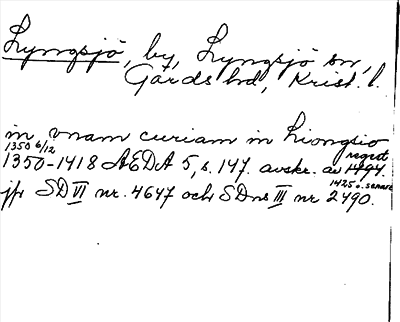 Lyngsjö, by, Lyngsjö sn,
Gärds hd, Krist. l.
in vnam curiam in Liongsio
1350 6/12 regest
1350-1418 ÆDA 5, s. 147. avskr. av 1494.
1425 o. senare
jfr SD VI nr. 4647 och SDns III nr 2490.